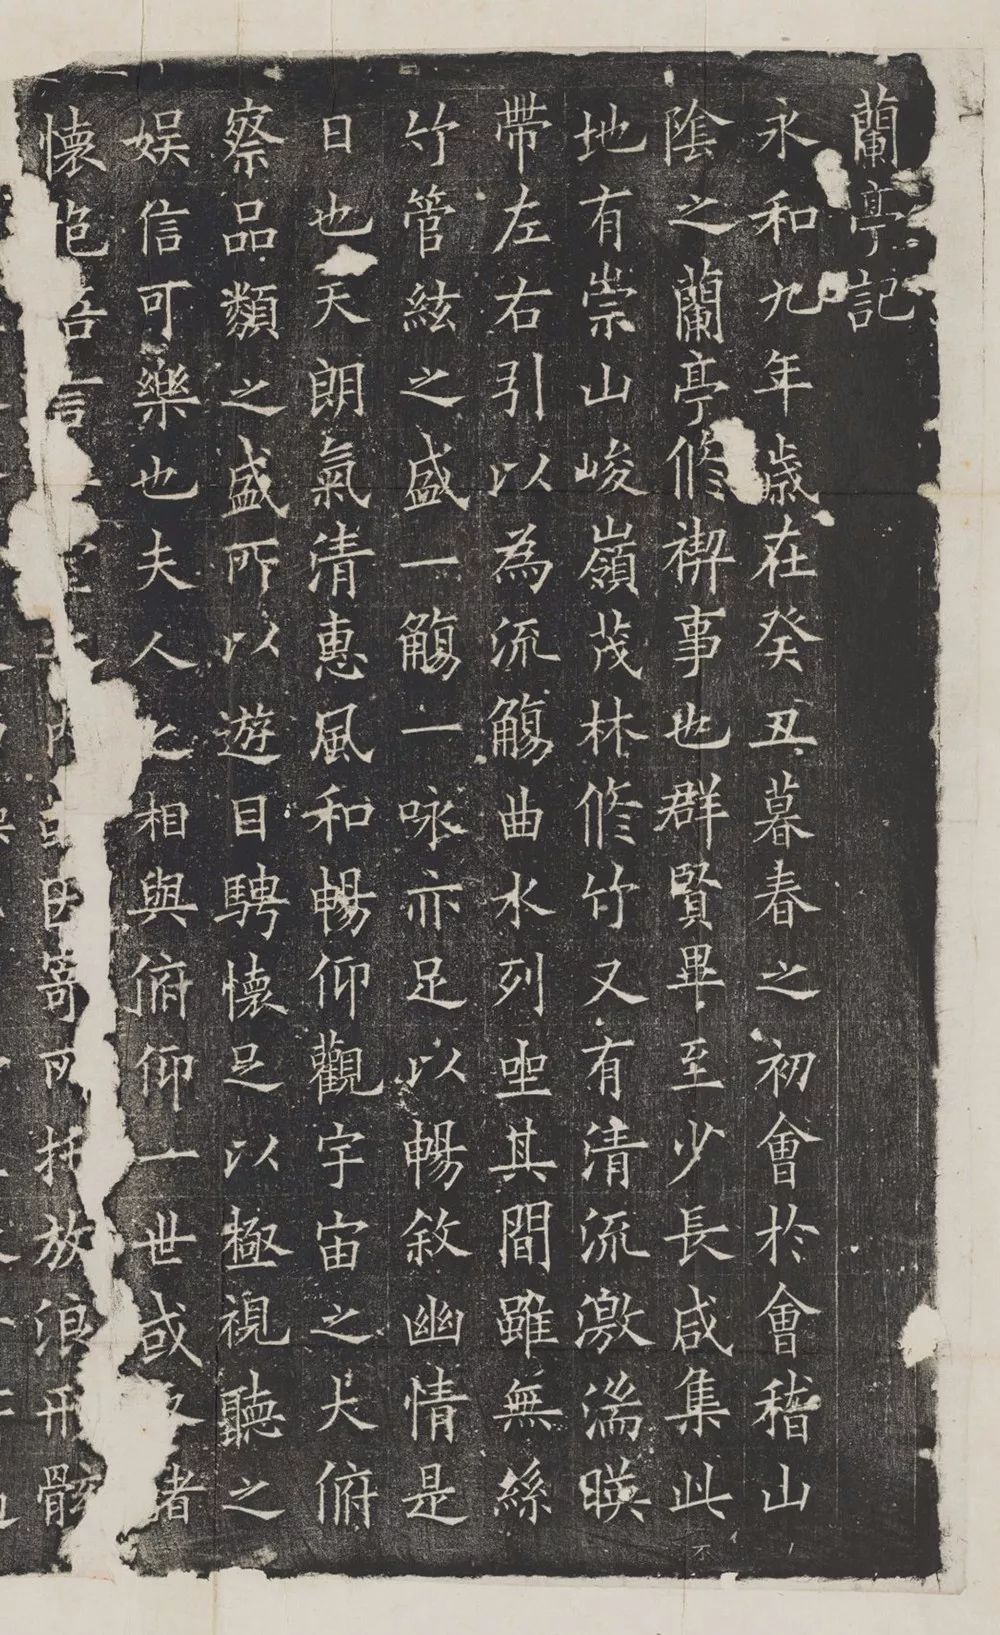 蘭亭記
永和九年歲在癸丑暮春之初會於會稽山
陰之蘭亭修禊事也群賢畢至少長咸集此
地有崇山峻嶺茂林修竹又有清流激湍暎
帶左右引以為流觴曲水列坐其間雖無絲
竹管絃之盛一觴一咏亦足以暢敘幽情是
日也天朗氣清惠風和暢仰觀宇宙之大俯
察品類之盛所以遊目騁懷足以極視聽之
娛信可樂也夫人之相與俯仰一世或取諸
懷抱悟言因寄所托放浪形骸